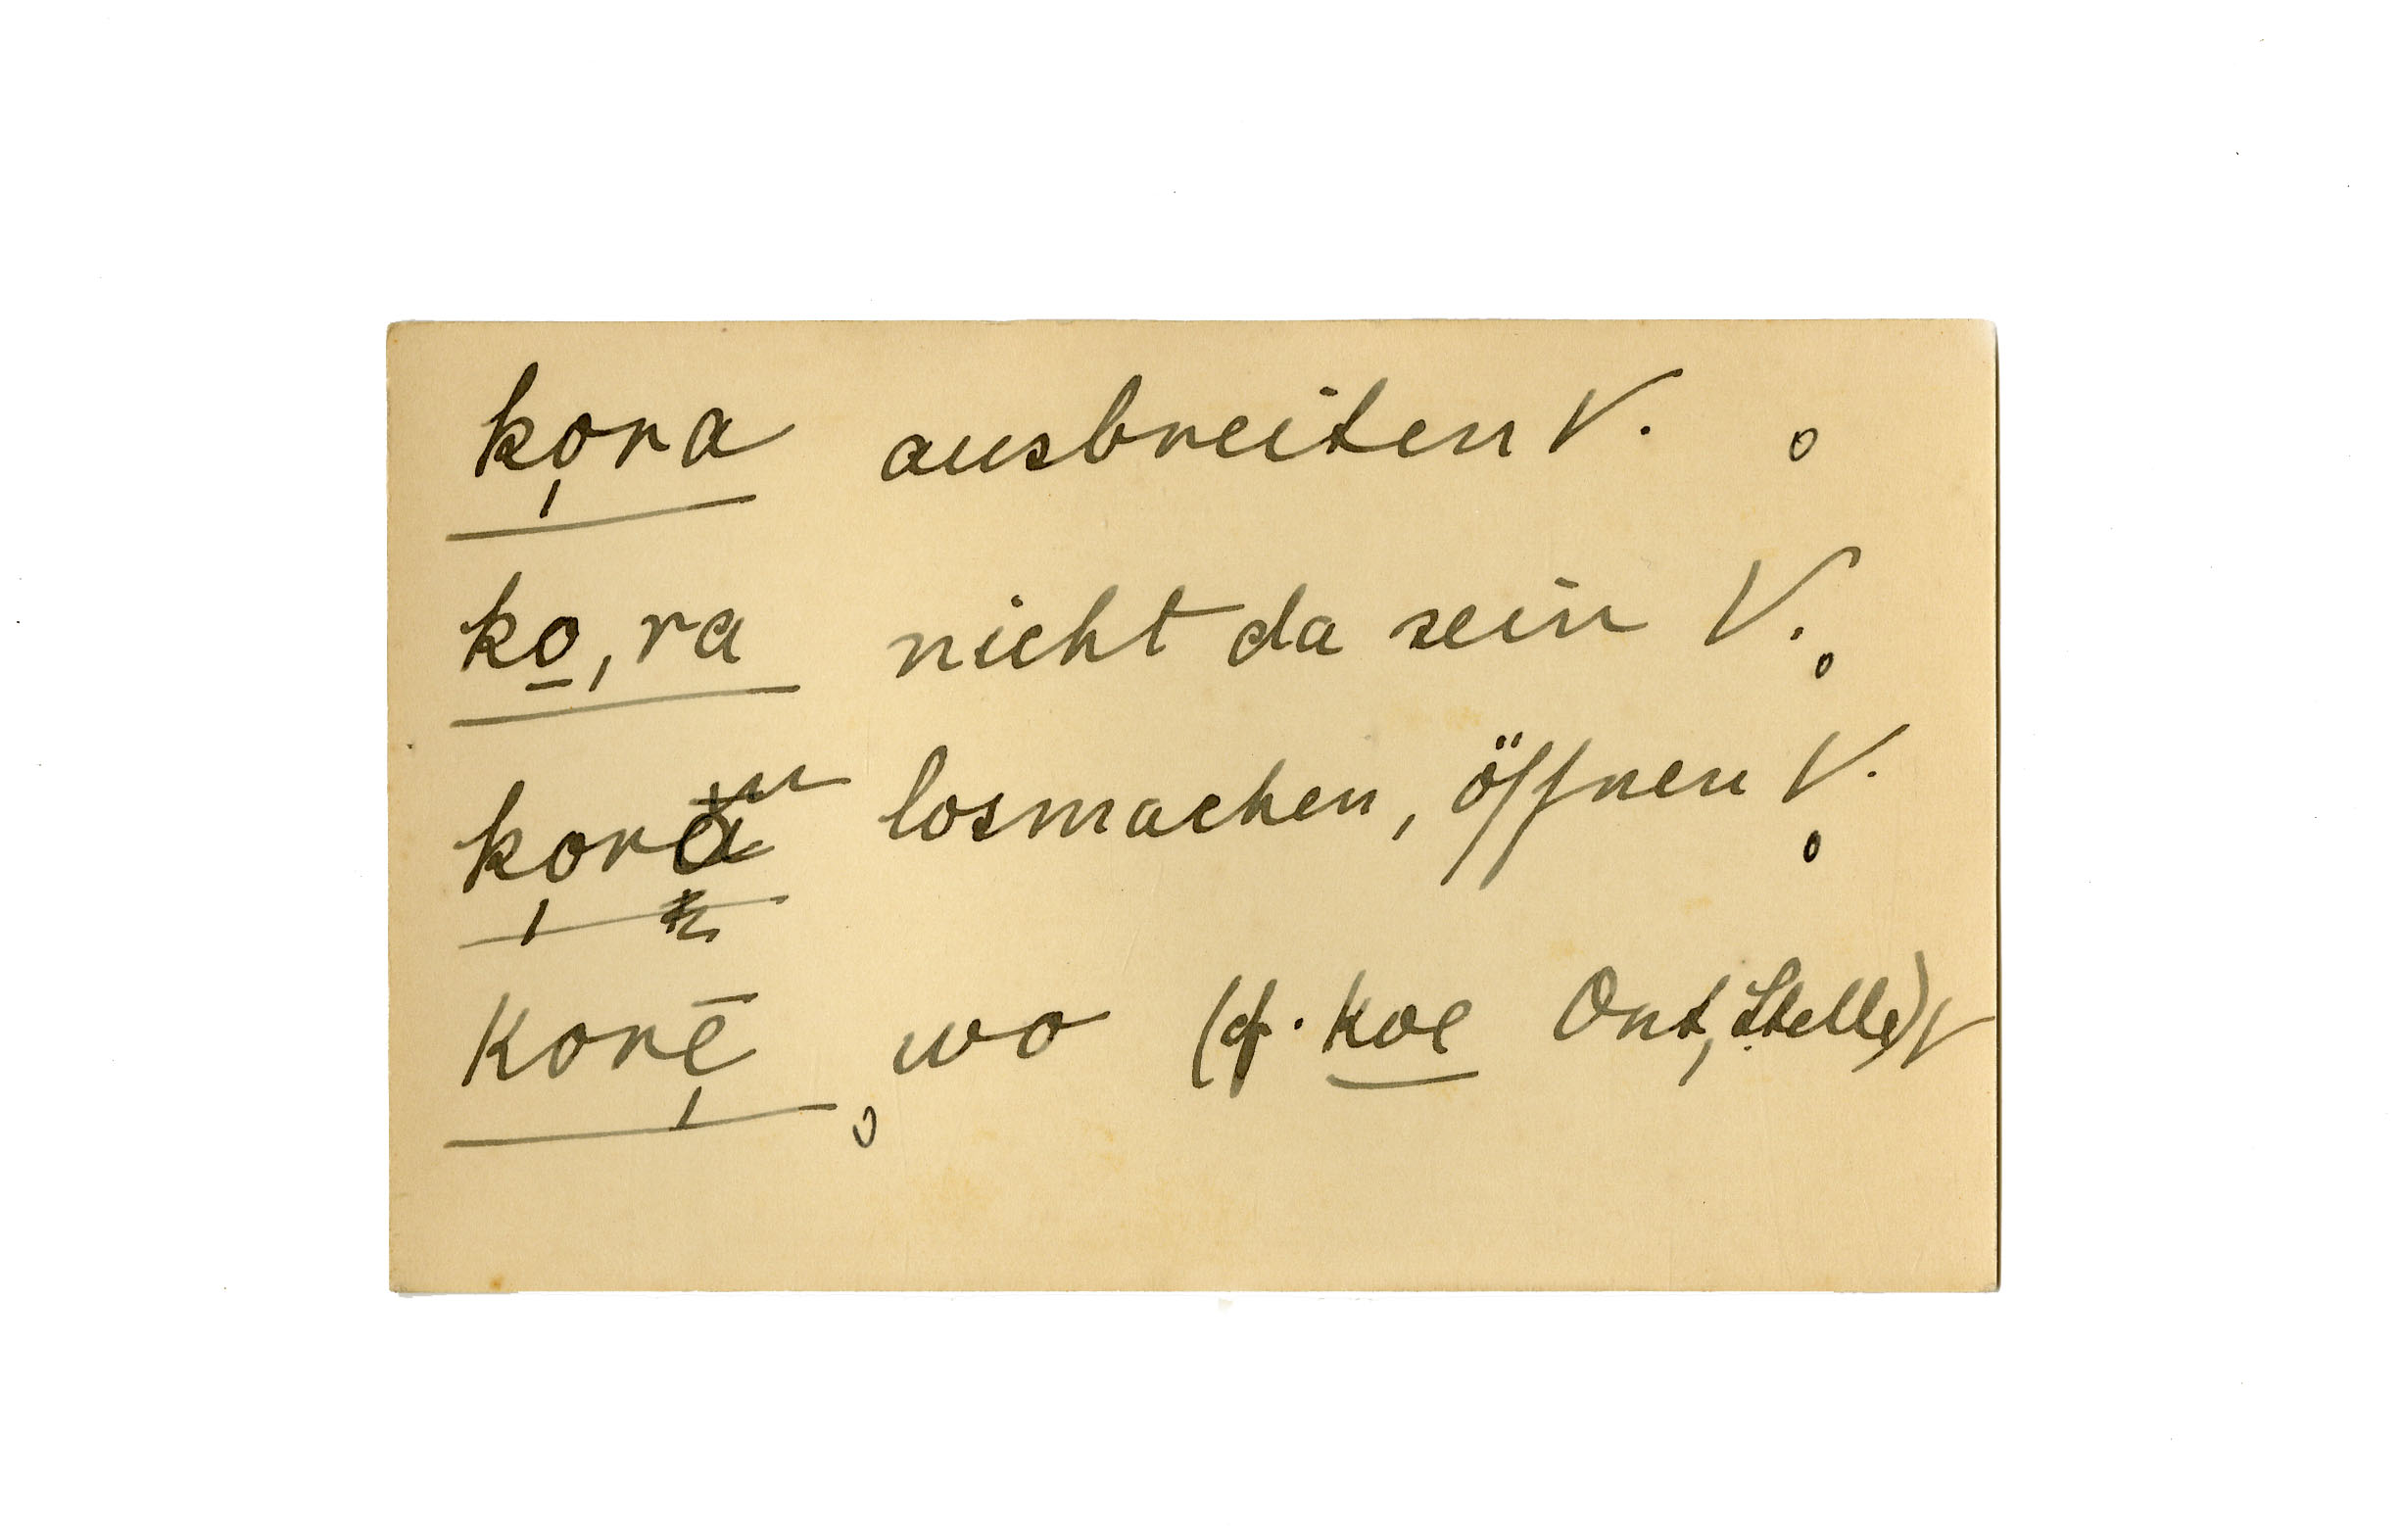 ko̩ra ausbreiten V. o
ko̱,ra nicht da sein V. o
losmachen, öffnen V. o
Korē̩ wo (cf. Koe Ort, Stelle) V
o